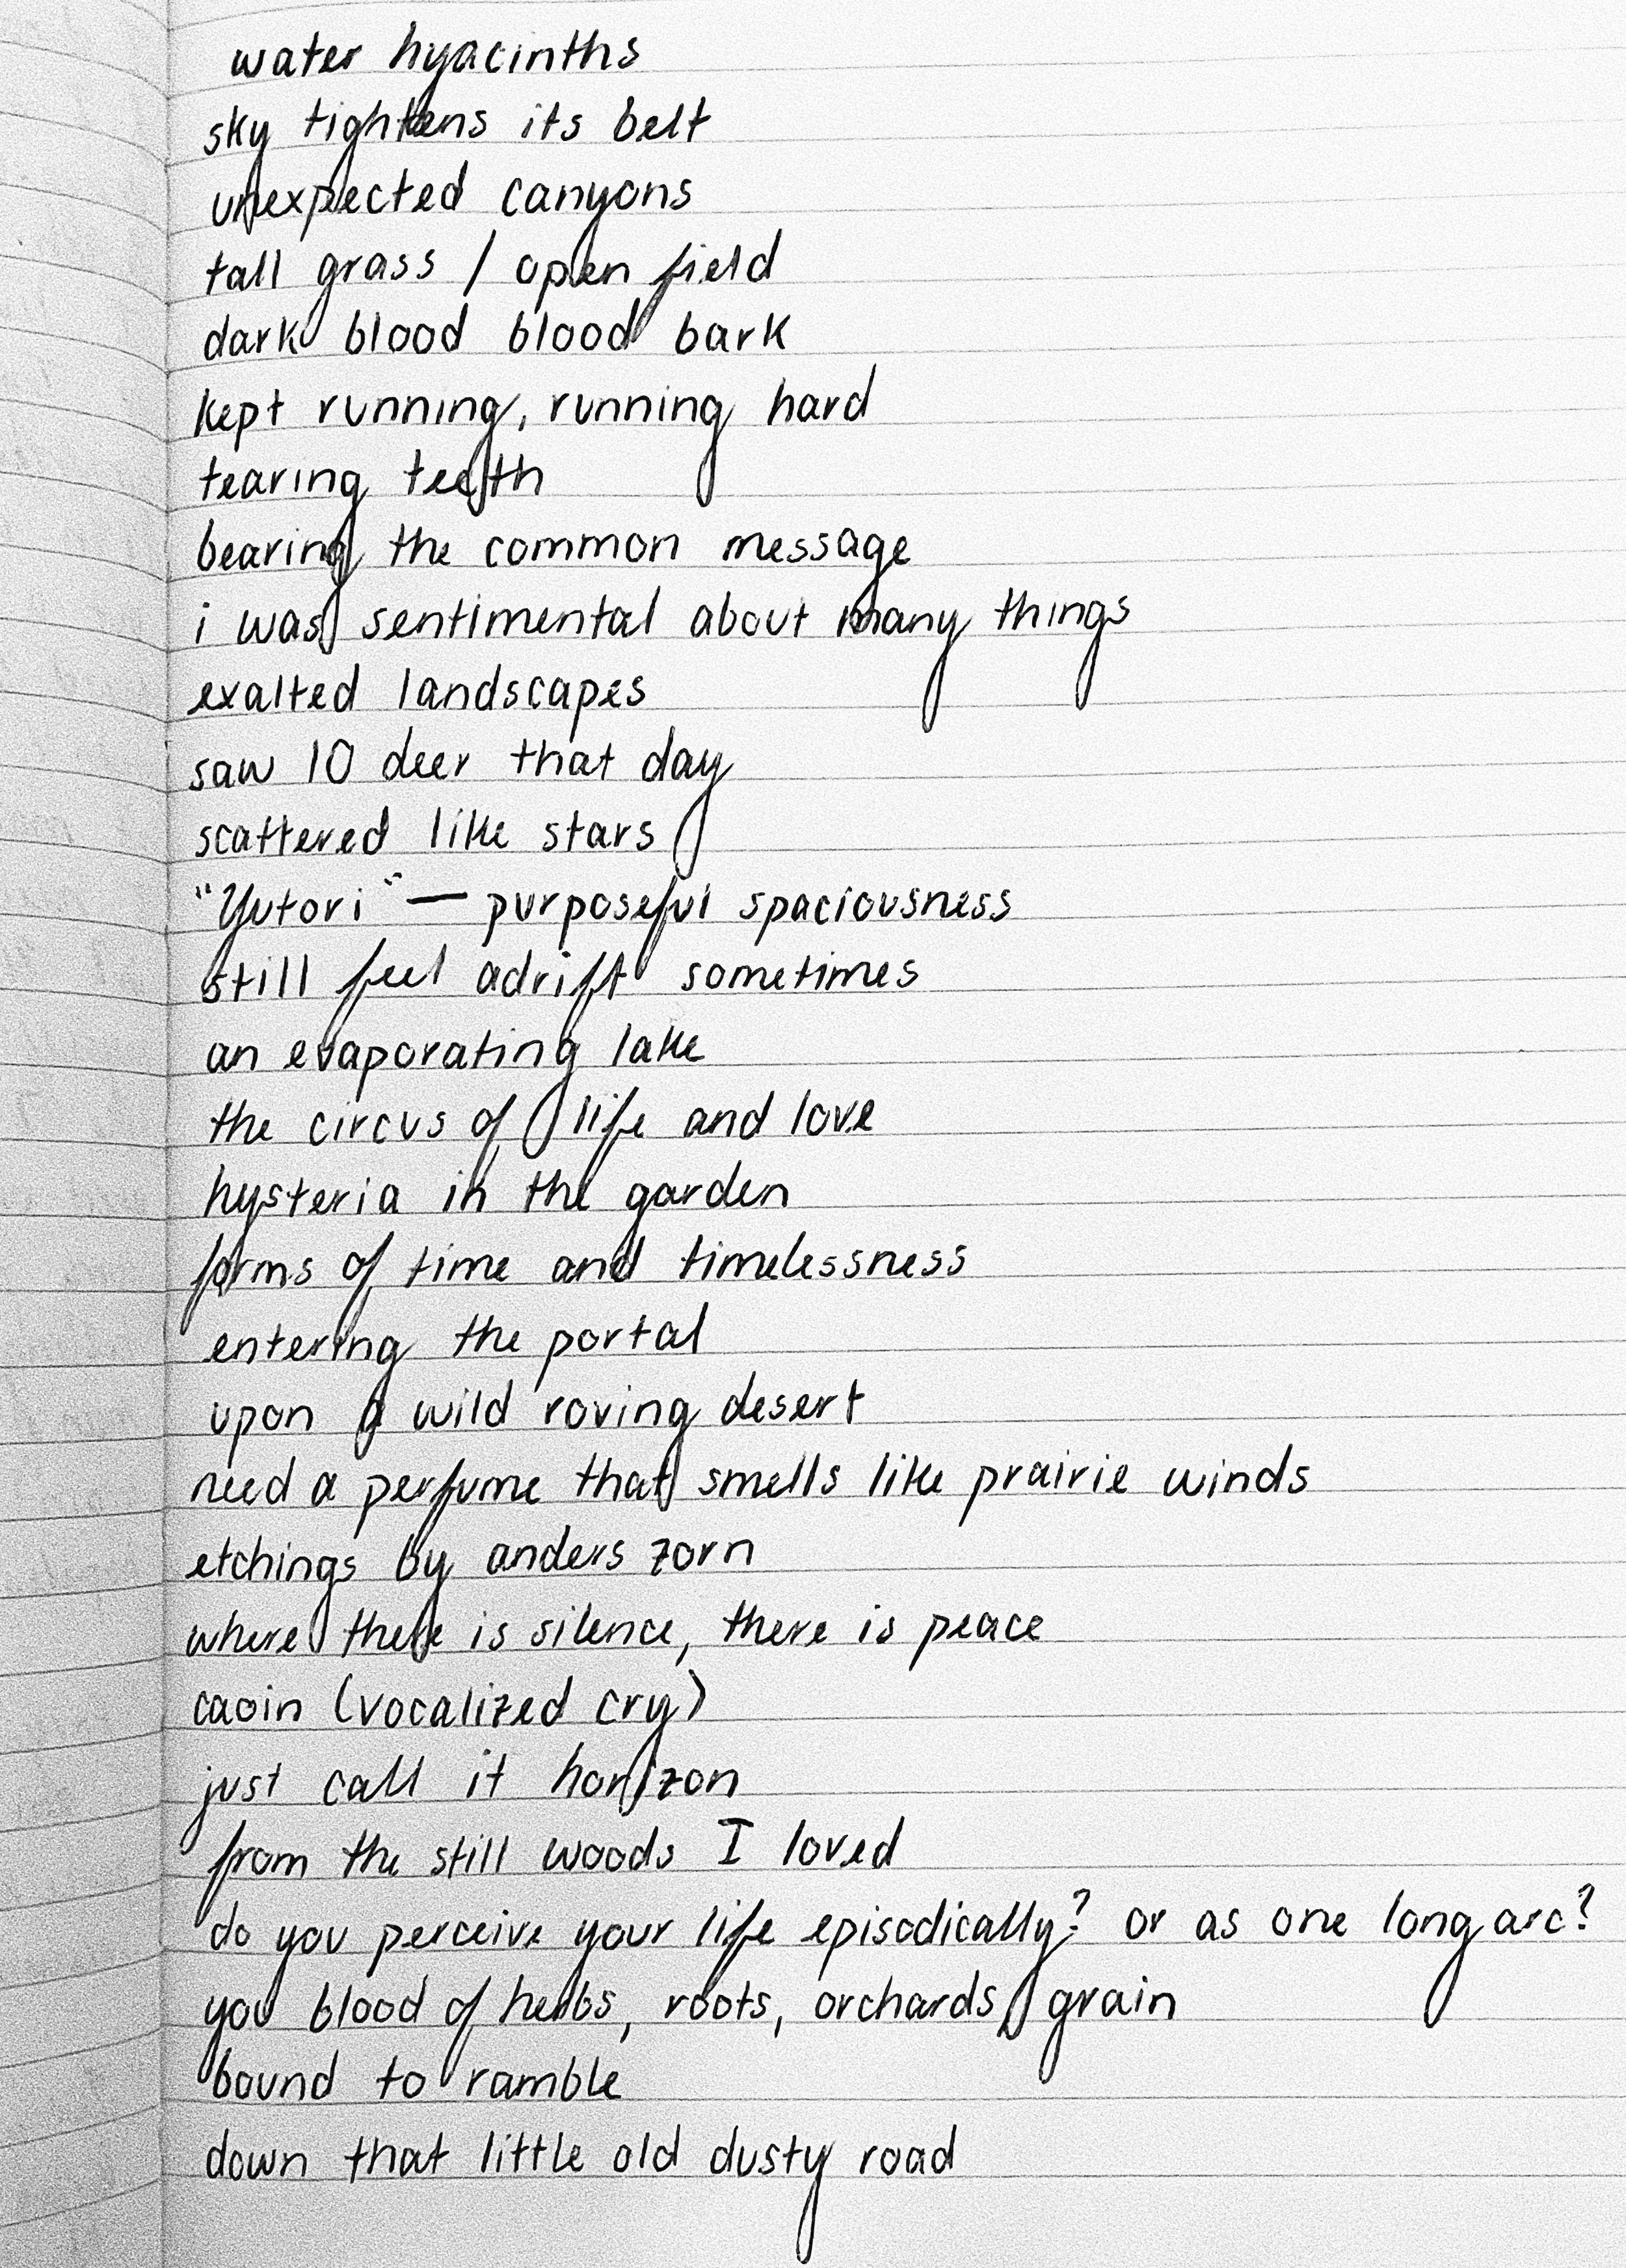 water hyacinths
sky tightens its belt
unexpected canyons
tall grass / open field
dark blood blood bark
kept running, running hard
tearing teeth
bearing the common message
i was sentimental about many things
exalted landscapes
saw 10 deer that day
scattered like stars
"Yutori" — purposeful spaciousness
still feel adrift sometimes
an evaporating lake
the circus of life and love
hysteria in the garden
forms of time and timelessness
entering the portal
upon a wild roving desert
need a perfume that smells like prairie winds
etchings by anders zorn
where there is silence, there is peace
caoin (vocalized cry)
just call it horizon
from the still woods I loved
do you perceive your life episodically? or as one long arc?
you blood of herbs, roots, orchards, grain
bound to ramble
down that little old dusty road